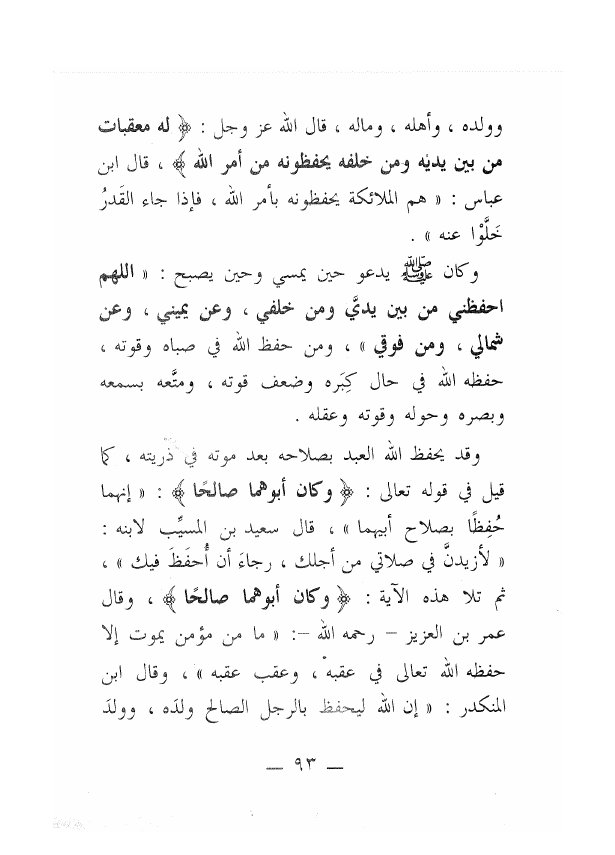 وولده ، وأهله ، وماله ، قال الله عز وجل : ﴿ له معقبات
من بين يديْه ومن خلفه يحفظونه من أمر الله ﴾ ، قال ابن
عباس : « هم الملائكة يحفظونه بأمر الله ، فإذا جاء القَدرُ
خَلَّوْا عنه » .
وكان ﷺ يدعو حين يمسي وحين يصبح : « اللهم
احفظني من بين يديَّ ومن خلفي ، وعن يميني ، وعن
شمالي ، ومن فوقي » ، ومن حفظ الله في صباه وقوته ،
حفظه الله في حال كِبَره وضعف قوته ، ومتَّعه بسمعه
وبصره وحوله وقوته وعقله .
وقد يحفظ الله العبد بصلاحه بعد موته في ذريته ، كما
قيل في قوله تعالى : ﴿ وكان أبوهما صالحًا ﴾ : « إنهما
حُفِظًا بصلاح أبيهما » ، قال سعيد بن المسيِّب لابنه :
« لأزيدنَّ في صلاتي من أجلك ، رجاءَ أن أُحفَظَ فيك » ،
ثم تلا هذه الآية : ﴿ وكان أبوهما صالحًا ﴾ ، وقال
عمر بن العزيز – رحمه الله –: « ما من مؤمن يموت إلا
حفظه الله تعالى في عقبه ، وعقب عقبه » ، وقال ابن
المنكدر : « إن الله ليحفظ بالرجل الصالح ولدَه ، وولدَ
— ٩٣ —